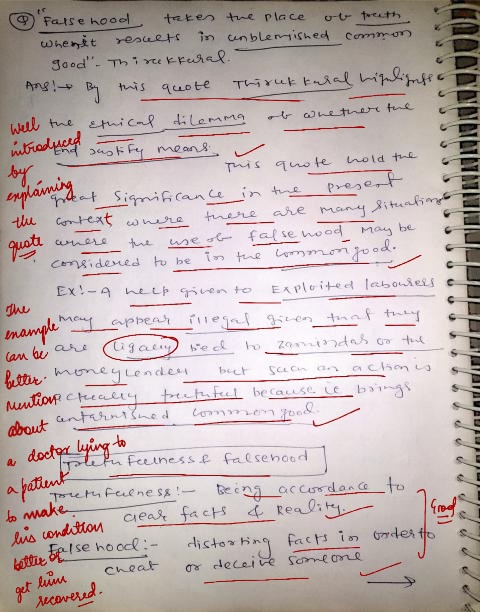 Q "Falsehood takes the place of truth
when it results in unblemished common
good" - Thirukkural.
Ans:→ By this quote Thirukkural highlights
the ethical dilemma of whether the
End Justify means.
This quote hold the
great significance in the present
context where there are many situations
where the use of falsehood may be
considered to be in the common good.
Ex:- A help given to Exploited labourers
may appear illegal given that they
are legally tied to zamindar or the
moneylender but such an action is
actually truthful because it brings
untarnished common good.
Truthfulness & falsehood
Truthfulness:- Being accordance to
clear facts & Reality.
Falsehood:- distorting facts in order to
cheat or deceive someone
Well
introduced
by
explaining
the
quote
The
example
can be
better.
Mention
about
a doctor lying to
a patient
to make
his condition
better or
get him
recovered.
Good